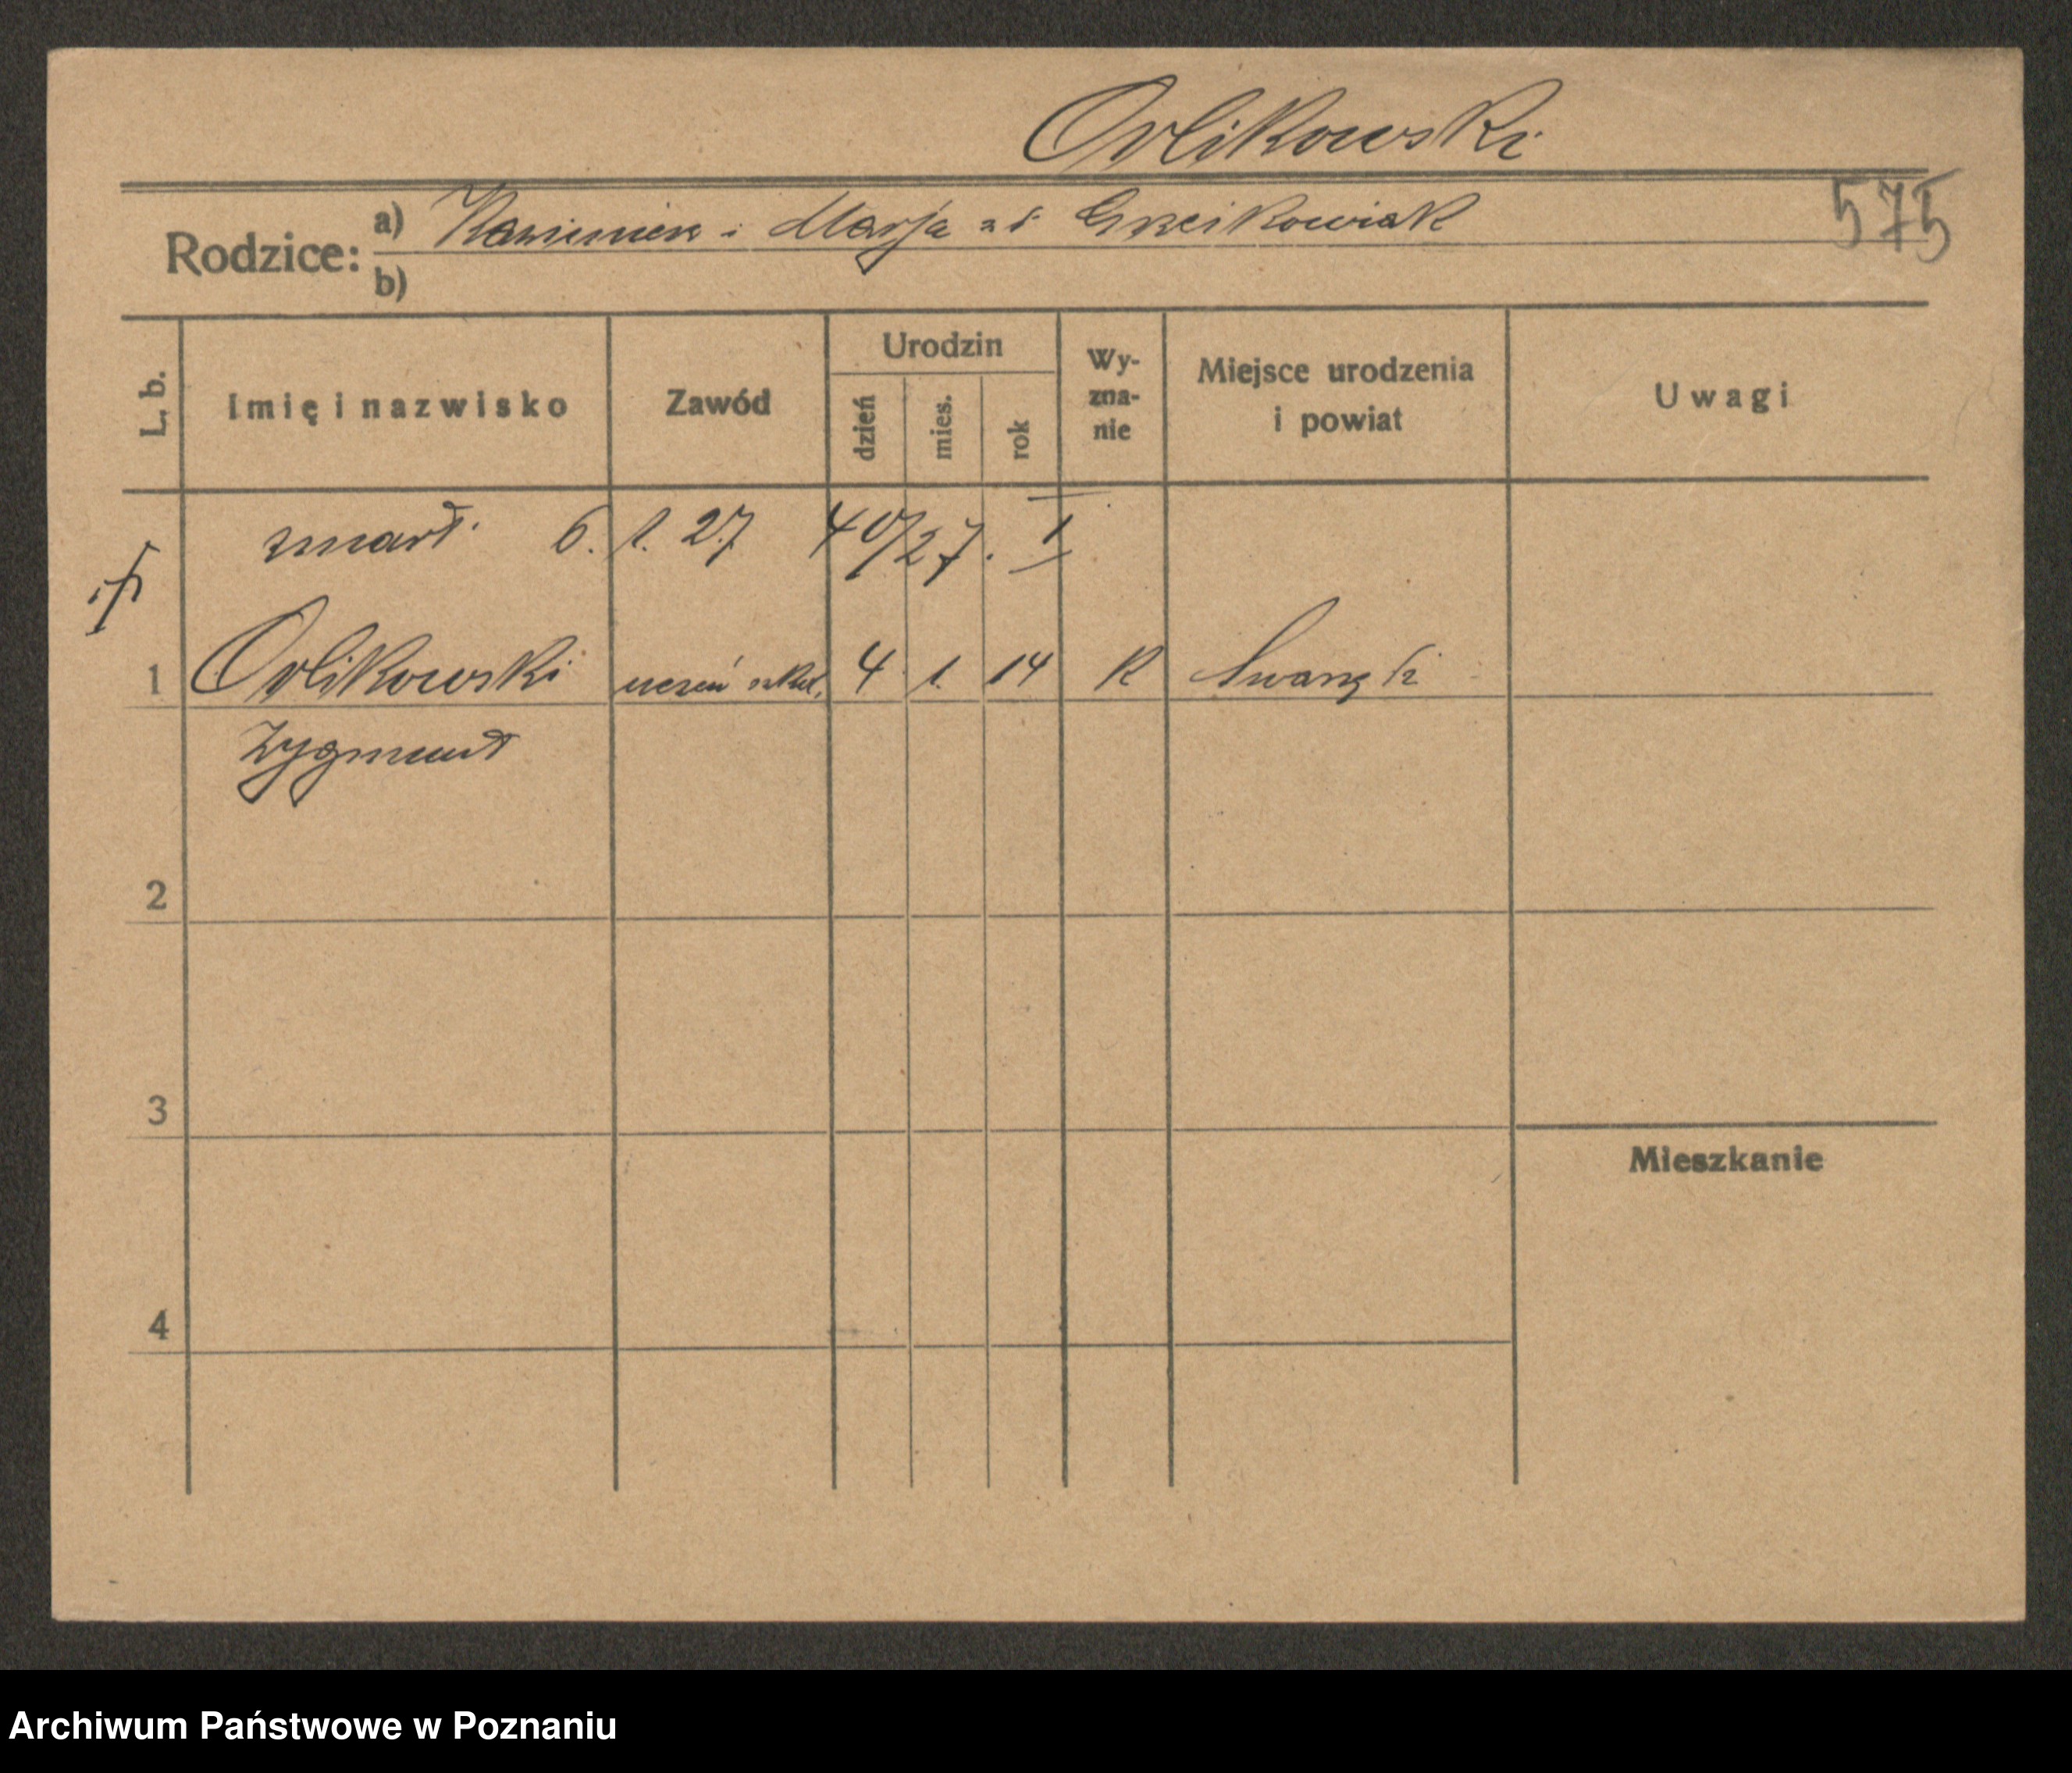 Orlikowski
575
Rodzice: a) Kazimierz i Marja zd Grzeikowiak
b)
L. b. Imię i nazwisko Zawód Urodzin dzień mies. rok Wyznanie Miejsce urodzenia i powiat Uwagi
zmarł. 6. 1. 27 40/27. I
1 Orlikowski uczeń szkol. 4 1. 14 R
Zygmunt
2
3
Mieszkanie
4
Archiwum Państwowe w Poznaniu